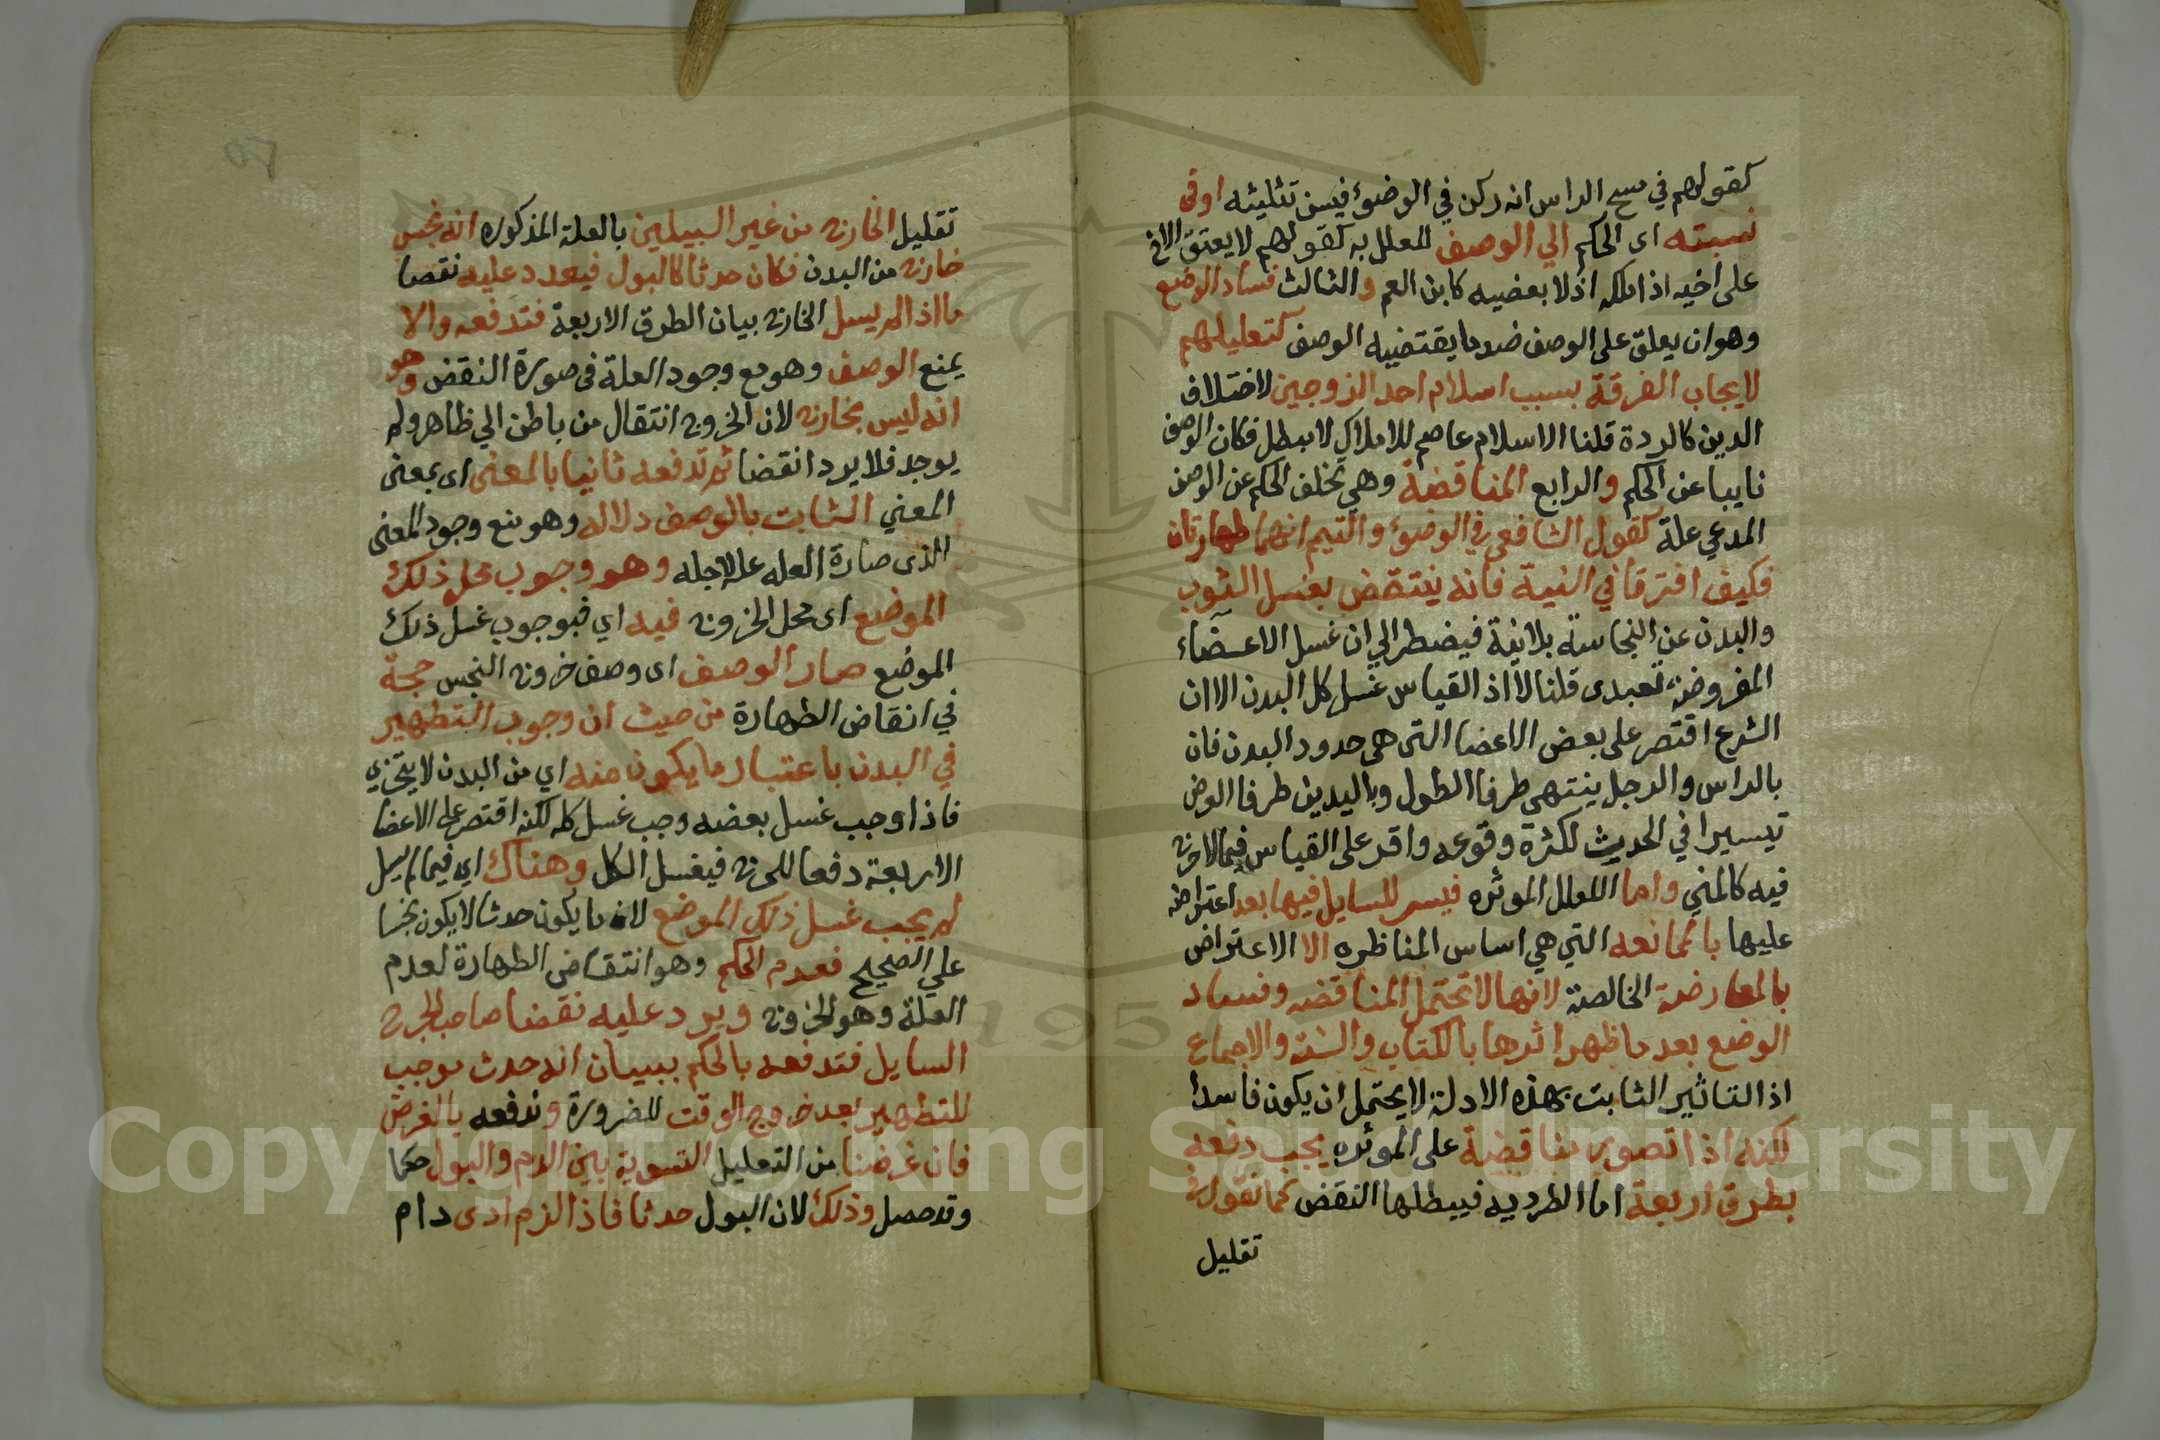 كقولهم في مسح الراس انه ركن في الوضوء فيسن تثليثه او في
نسبته اى الحكم الي الوصف المعلل به كقولهم لا يعتق الاخ
على اخيه اذا ملكه اذ لا بعضيه كابن العم والثالث فساد الوضع
وهو ان يعلق على الوصف ضد ما يقتضيه الوصف كتعليلهم
لايجاب الفرقة بسبب اسلام احد الزوجين لاختلاف
الدين كالردة قلنا الاسلام عاصم للاملاك لا مبطل فكان الوصف
نايبا عن الحكم والرابع المناقضة وهي تخلف الحكم عن الوصف
المدعي علة كقول الشافعي في الوضوء والتيمم انهما طهارتان
فكيف افترقا في النية فانه ينتقض بغسل الثوب
والبدن عن النجاسة بلا نية فيضطر الي ان غسل الاعضاء
المفروضة تعبدى قلنا لا اذ القياس غسل كل البدن الا ان
الشرع اقتصر على بعض الاعضا التى هى حدود البدن فان
بالراس والرجل ينتهى طرفا الطول وباليدين طرفا العرض
تيسيرا في الحديث لكثرة وقوعه واقر على القياس فيما لا حرج
فيه كالمني واما العلل الموثره فيسر للسايل فيها بعد اعتراضه
عليها بالممانعه التي هي اساس المناظره الا الاعتراض
بالمعارضة الخالصة لانها لا تحتمل المناقضه وفساد
الوضع بعد ما ظهر اثرها بالكتاب والسنة والاجماع
اذ التاثير الثابت بهذه الادلة لا يحتمل ان يكون فاسدا
لكنه اذا تصور مناقضة على الموثره يجب دفعه
بطرق اربعة اما الطرديه فيبطلها النقض كما نقول في
تقليل
تقليل الخارج من غير السبيلين بالعلة المذكوره انه نجس
خارج من البدن فكان حدثا كالبول فيعدد عليه نقصا
ما اذا لم يسل الخارج ببيان الطرق الاربعة فتدفعه والا
يمنع الوصف وهو مع وجود العلة فى صورة النقض وهو
انه ليس بخارج لان الخروج انتقال من باطن الي ظاهر ولم
يوجد فلا يرد انقضا ثم تدفعه ثانيا بالمعنى اى بمعنى
المعني الثابت بالوصف دلاله وهو منع وجود المعنى
الذى صارة العله عله لاجله وهو وجوب محل ذلك
الموضع اى محل الخروج فيه اي فبوجوب غسل ذلك
الموضع صار الوصف اى وصف خروج النجس حجة
في انقاض الطهارة من حيث ان وجوب التطهير
في البدن باعتبار ما يكون منه اي من البدن لا يتجزي
فاذا وجب غسل بعضه وجب غسل كله لكنه اقتصر على الاعضا
الاربعة دفعا للحرج فيغسل الكل وهناك اي فيما لم يسل
لم يجب غسل ذلك الموضع لان ما يكون حدثا لا يكون نجسا
علي الصحيح فعدم الحكم وهو انتقاض الطهارة لعدم
العلة وهو الخروج ويرد عليه نقضا صاحب الجرح
السايل فتدفعه بالحكم ببيان انه حدث موجب
للتطهير بعد خروج الوقت للضرورة وندفعه بالغرض
فان غرضنا من التعليل التسوية بين الدم والبول حكما
وقد حصل وذلك لان البول حدثا فاذا لزم ادى دام
Copyright © King Saud University
1957